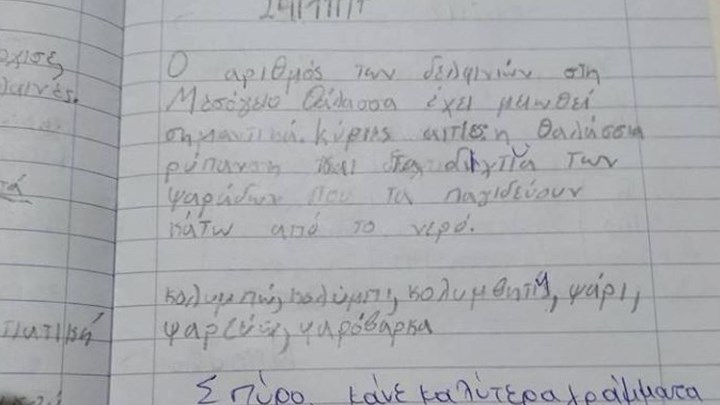 Ο αριθμός των δελφινιών στη
Μεσόγειο Θάλασσα έχει μειωθεί
σημαντικά. Κύριες αιτίες η θαλάσσια
ρύπανση και τα δίχτυα των
ψαράδων που τα παγιδεύουν
κάτω από το νερό.
κολυμπώ, κολύμπι, κολυμβητής, ψάρι,
ψαρεύω, ψαρόβαρκα
Σπύρο κάνε καλύτερα γράμματα